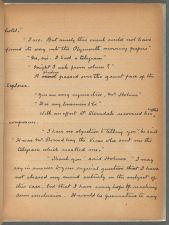 hotel."
"I see. But surely this event could not have
found its way into the Plymouth morning papers"
"No, sir. I had a telegram"
"Might I ask from whom?"
A shadow passed over the gaunt face of the
explorer.
"You are very inquisitive, Mr. Holmes"
"It is my business to be"
With an effort Dr. Sterndale recovered his
composure.
"I have no objection to telling you" he said
"It was Mr. Roundhay the Vicar who sent me the
telegram which recalled me."
"Thank you" said Holmes "I may
say in answer to your original question that I have
not cleared my mind entirely on the subject of
this case, but that I have every hope of reaching
some conclusion. It would be premature to say